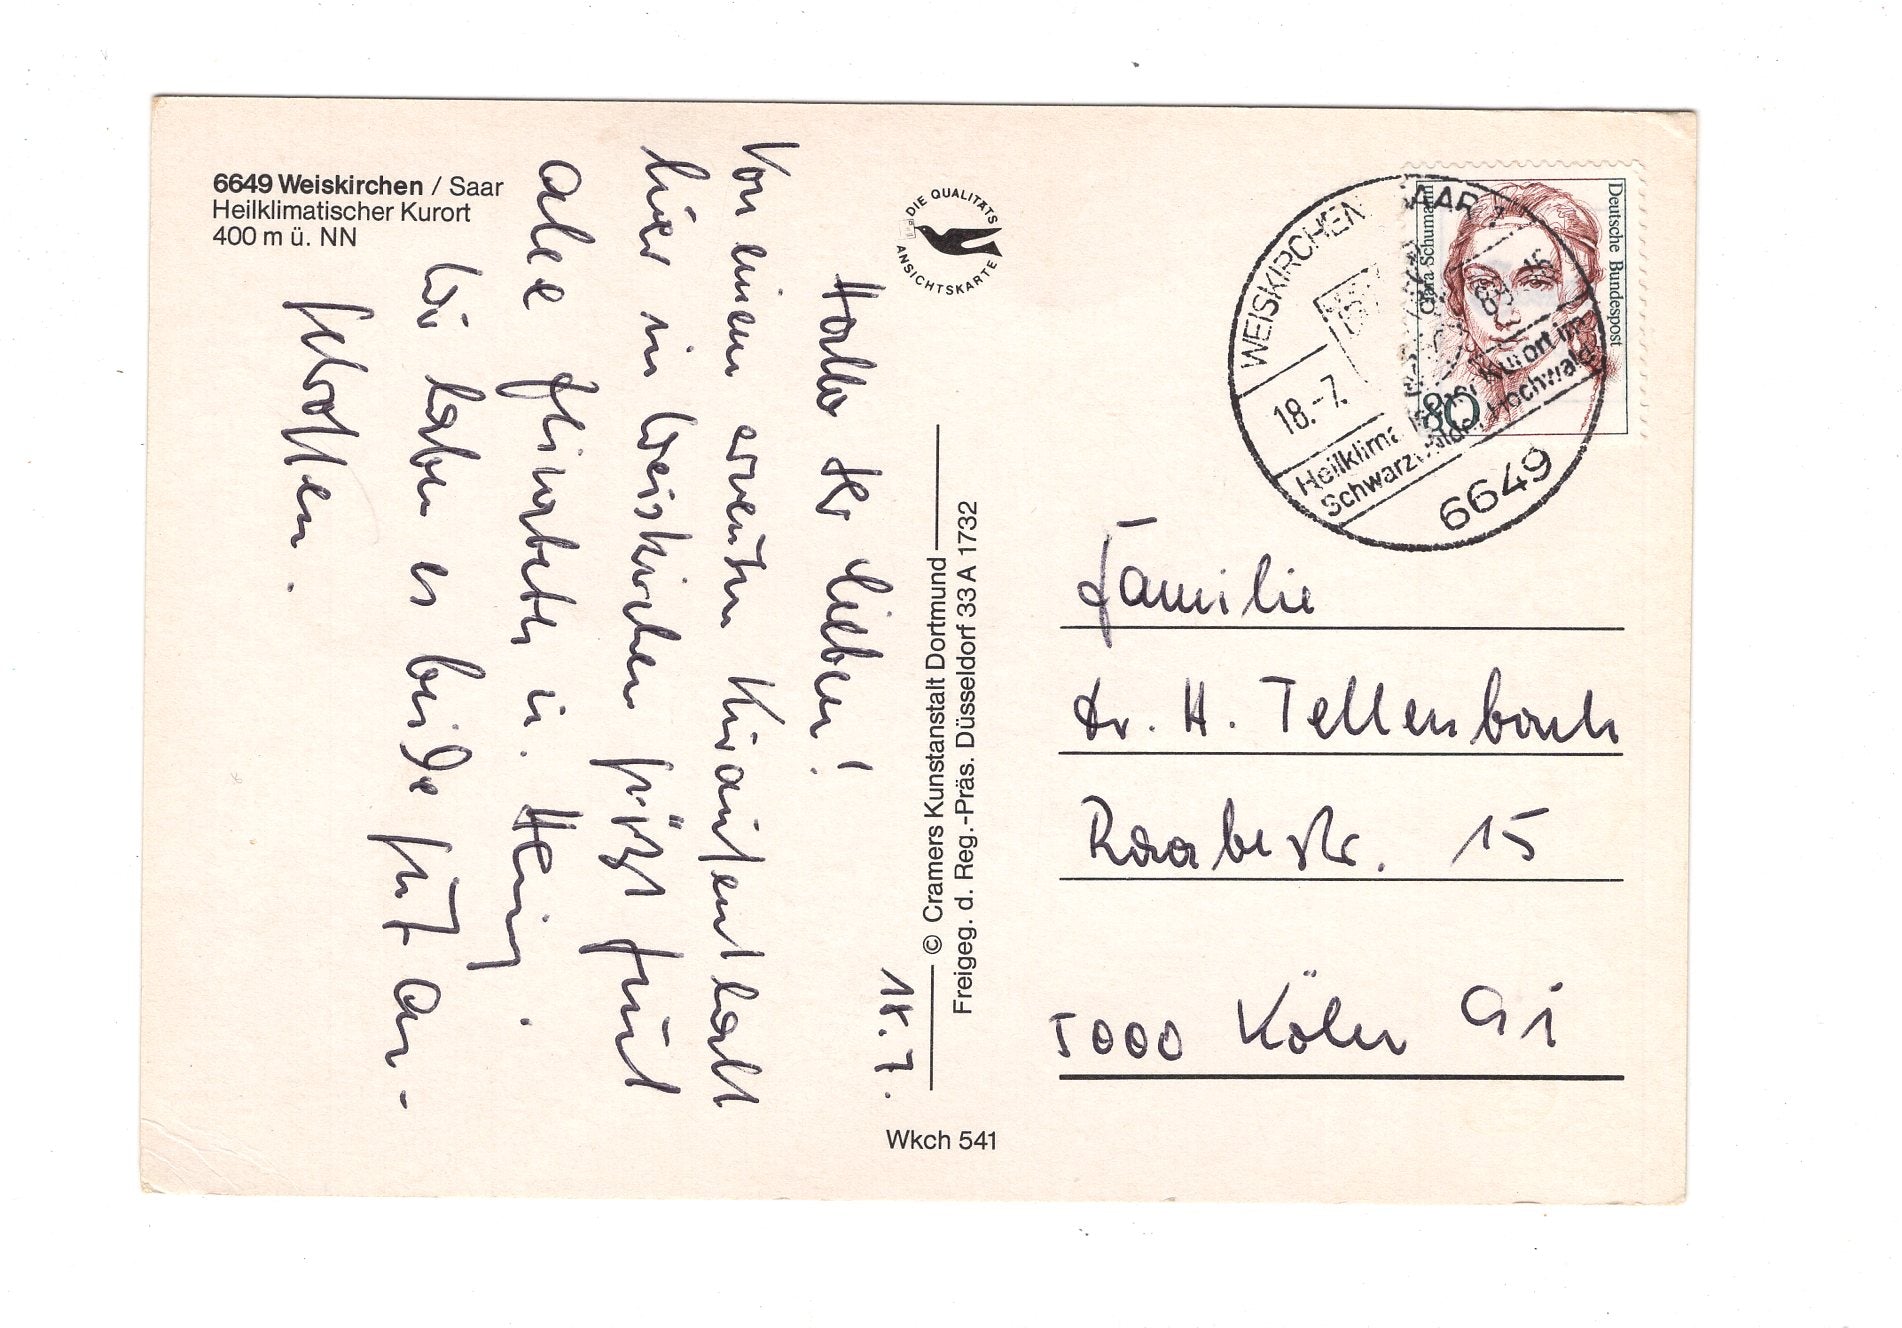 6649 Weiskirchen / Saar
Heilklimatischer Kurort
400 m ü. NN
DIE QUALITÄTS
ANSICHTSKARTE
18. 7.
Hallo Ihr Lieben!
Von einem erneuten Kuraufenthalt
hier in Weiskirchen grüßt Euch
alle
u.
Wir haben es beide gut an-
getroffen.
© Cramers Kunstanstalt Dortmund
Freigeg. d. Reg.-Präs. Düsseldorf 33 A 1732
Wkch 541
Deutsche Bundespost
Clara Schumann
80
WEISKIRCHEN SAAR
18.-7. 89-16
Heilklima Kurort im
Schwarzwälder Hochwald
6649
Familie
Dr. H. Tellenbach
Raabestr. 15
5000 Köln 91